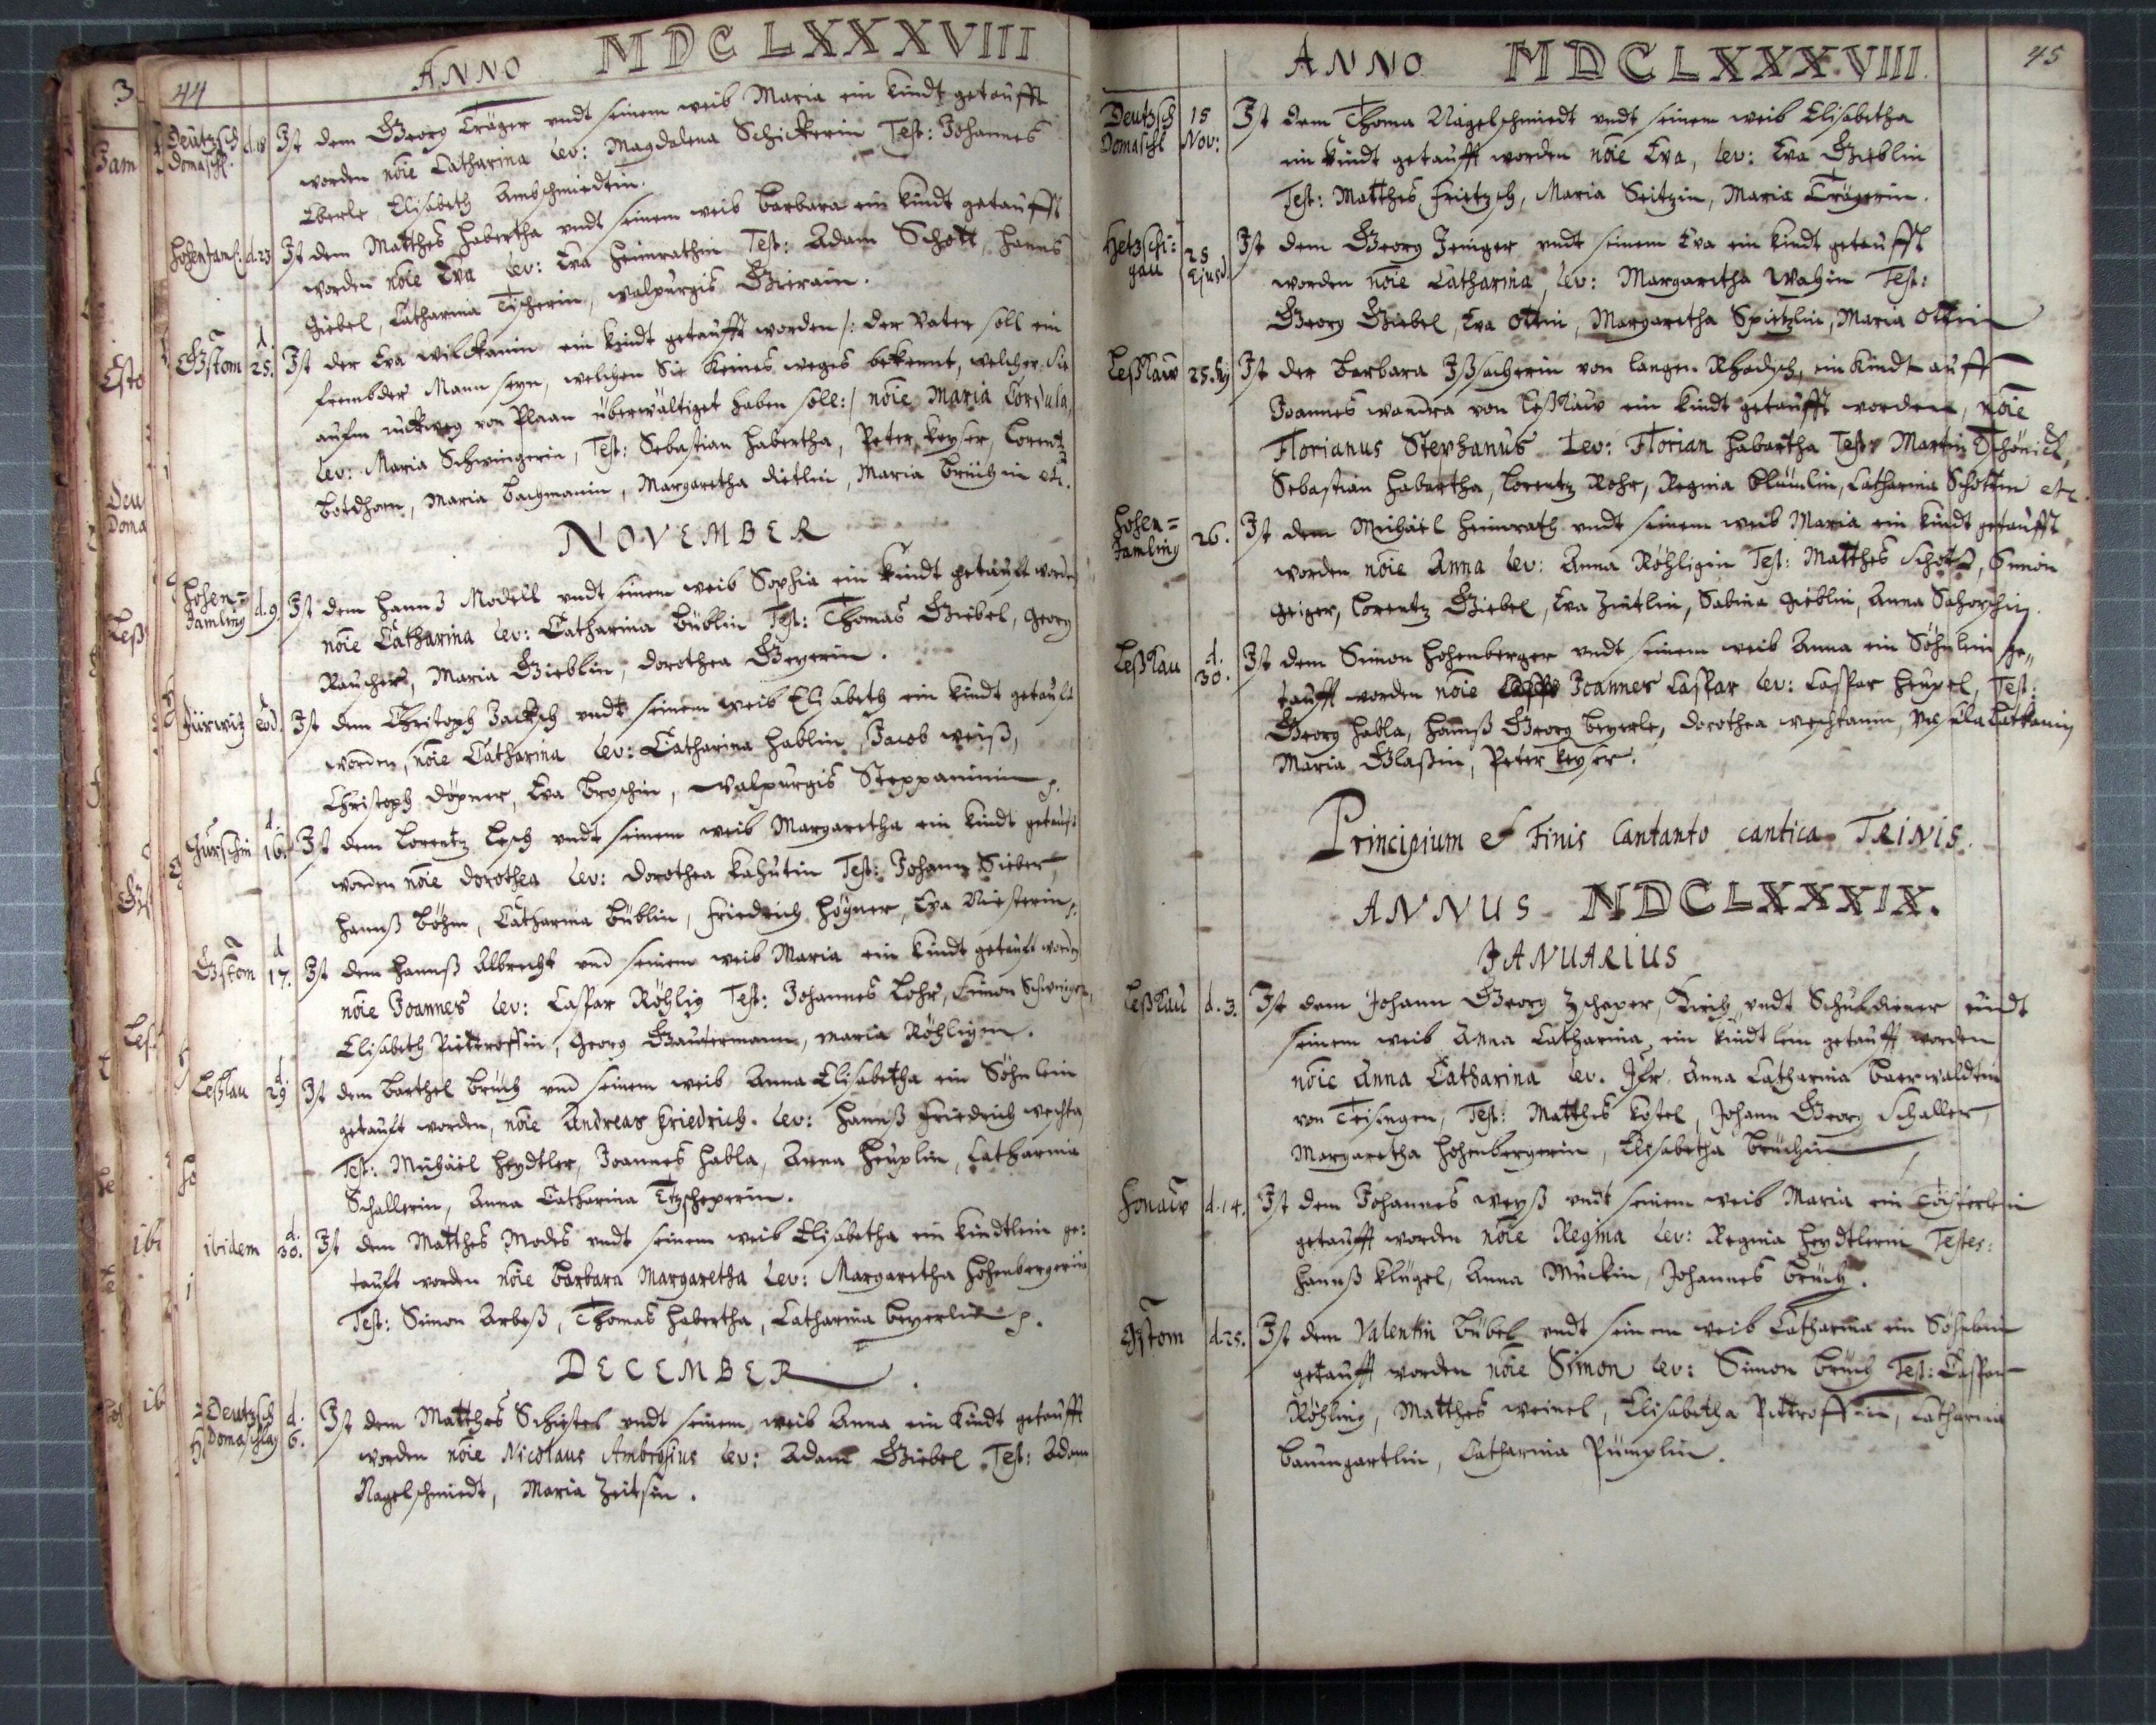 44
ANNO MDCLXXXVIII
Deutzsch Domaschl. d. 18 Ist dem Georg Träger undt seinem weib Maria ein Kindt getaufft
worden noie Catharina lev: Magdalena Schickerin Test: Johannes
Eberle, Elisabeth Ambschmiedtin.
Hohenjaml. d. 23 Ist dem Matthes Habertha undt seinem weib Barbara ein Kindt getaufft
worden noie Eva lev: Eva Heinrathin Test: Adam Schott, Hanns
Giebel, Catharina Tischerin, Walpurgis Gierain.
Gstom d. 25. Ist der Eva Wilckanin ein Kindt getaufft worden /: der Vater soll ein
frembder Mann seyn, welchen Sie Keines weges bekennt, welcher Sie
aufm ruckweg von Plaan überwältiget haben solle :/ noie Maria Cordula,
lev: Maria Schwingerin, Test: Sebastian Habertha, Peter Keyser, Lorentz
Botdhorn, Maria Bachmanin, Margaretha Dietlin, Maria Brüchin etc.
NOVEMBER
Hohen= Jamling d. 9. Ist dem Hannß Modell undt seinem weib Sophia ein Kindt getauft worden
noie Catharina lev: Catharina Büblin Test: Thomas Giebel, Georg
Rauscher, Maria Gieblin, Dorothea Geyerin.
Jürwitz eod. Ist dem Christoph Jacksch undt seinem weib Elisabeth ein Kindt getauft
worden, noie Catharina lev: Catharina Hablin, Jacob Weiß,
Christoph Döpner, Eva Broschin, Walpurgis Steppaninin p.
Gürschin d. 16. Ist dem Lorentz Lesch undt seinem weib Margaretha ein Kindt getauft
worden noie Dorothea lev: Dorothea Kahutin Test: Johann Sieber,
Hannß Böhm, Catharina Büblin, Friedrich Högner, Eva Niesterin p.
Gstom d 17. Ist dem Hannß Albrecht und seinem weib Maria ein Kindt getauft worden
noie Joannes lev: Caspar Röhlig Test: Johannes Lohr, Simon Schwinger,
Elisabeth Pittroffin, Georg Gautermann, Maria Röhligin.
Leßlau d. 29 Ist dem Barthel Brüch und seinem weib Anna Elisabetha ein Söhnlein
getauft worden, noie Andreas Friedrich. lev: Hannß Friedrich Wechta
Test: Michäel Heydtler, Joannes Habla, Anna Heuplin, Catharina
Schallerin, Anna Catharina Tzscheperin.
ibidem d. 30. Ist dem Matthes Modes undt seinem weib Elisabetha ein Kindtlein ge:
tauft worden noie Barbara Margaretha lev: Margaretha Hohenbergerin
Test: Simon Arbeß, Thomas Habertha, Catharina Beyerlin p.
DECEMBER
Deutzsch Domaschlag d. 6. Ist dem Matthes Schistel undt seinem weib Anna ein Kindt getaufft
worden noie Nicolaus Ambrosius lev: Adam Giebel Test: Adam
Nagelschmiedt, Maria Zeitsin.
45
ANNO MDCLXXXVIII.
Deutzsch Domaschl 15 Nov: Ist dem Thoma Nagelschmiedt undt seinem weib Elisabetha
ein Kindt getaufft worden noie Eva, lev: Eva Gieblin
Test: Matthes Frietzsch, Maria Seitzin, Maria Trägerin.
Hetzschi= gau 25 Ejusd. Ist dem Georg Jeniger undt seinem Eva ein Kindt getaufft
worden noie Catharina, lev: Margaretha Wahin Test:
Georg Giebel, Eva Ottin, Margaretha Spietzlin, Maria Ottin
Leßlaw 25. Ist der Barbara von langen Rhadsch, ein Kindt auff
Joannes Wandra von Leßlaw ein Kindt getaufft worden, noie
Florianus Stephanus Lev: Florian Habertha Test: Martin
Sebastian Habertha, Lorentz Rohr, Regina Bläumlin, Catharina Schottin etc.
Hohen= Jamling 26. Ist dem Michäel Heinrath undt seinem weib Maria ein Kindt getaufft
worden noie Anna lev: Anna Röhligin Test: Matthes Schott, Simon
Geiger, Lorentz Giebel, Eva Zintlin, Sabina Gieblin, Anna
Leßlau d. 30. Ist dem Simon Hohenberger undt seinem weib Anna ein Söhnlein ge„
taufft worden noie Joannes Caspar lev: Caspar Heupel, Test:
Georg Habla, Hannß Georg Beyerle, Dorothea Wechtanin,
Maria Glaßin, Peter Keyser.
Principium et Finis Cantanto cantica TRINIS.
ANNUS MDCLXXXIX.
JANUARIUS
Leßlau d. 3. Ist dem Johann Georg Zscheper, Kirch, undt Schuldiener undt
seinem weib Anna Catharina ein Kindtlein getaufft worden
noie Anna Catharina lev. Jfr. Anna Catharina Baerwaldtin
von Teisingen, Test: Matthes Köstel, Johann Georg Schaller,
Margaretha Hohenbergerin, Elisabetha Brüchin
Honaw d. 14. Ist dem Johannes Weyß undt seinem weib Maria ein Töchterlein
getaufft worden noie Regina lev: Regina Heydtlerin Testes:
Hannß Klügel, Anna Mückin, Johannes Brüch.
Gstom d. 25. Ist dem Valentin Bübel undt seinem weib Catharina ein Söhnlein
getaufft worden noie Simon lev: Simon Brüch Test: Caspar
Röhling, Matthes Weinel, Elisabetha Pittroffin, Catharina
Baumgartlin, Catharina Pümplin.